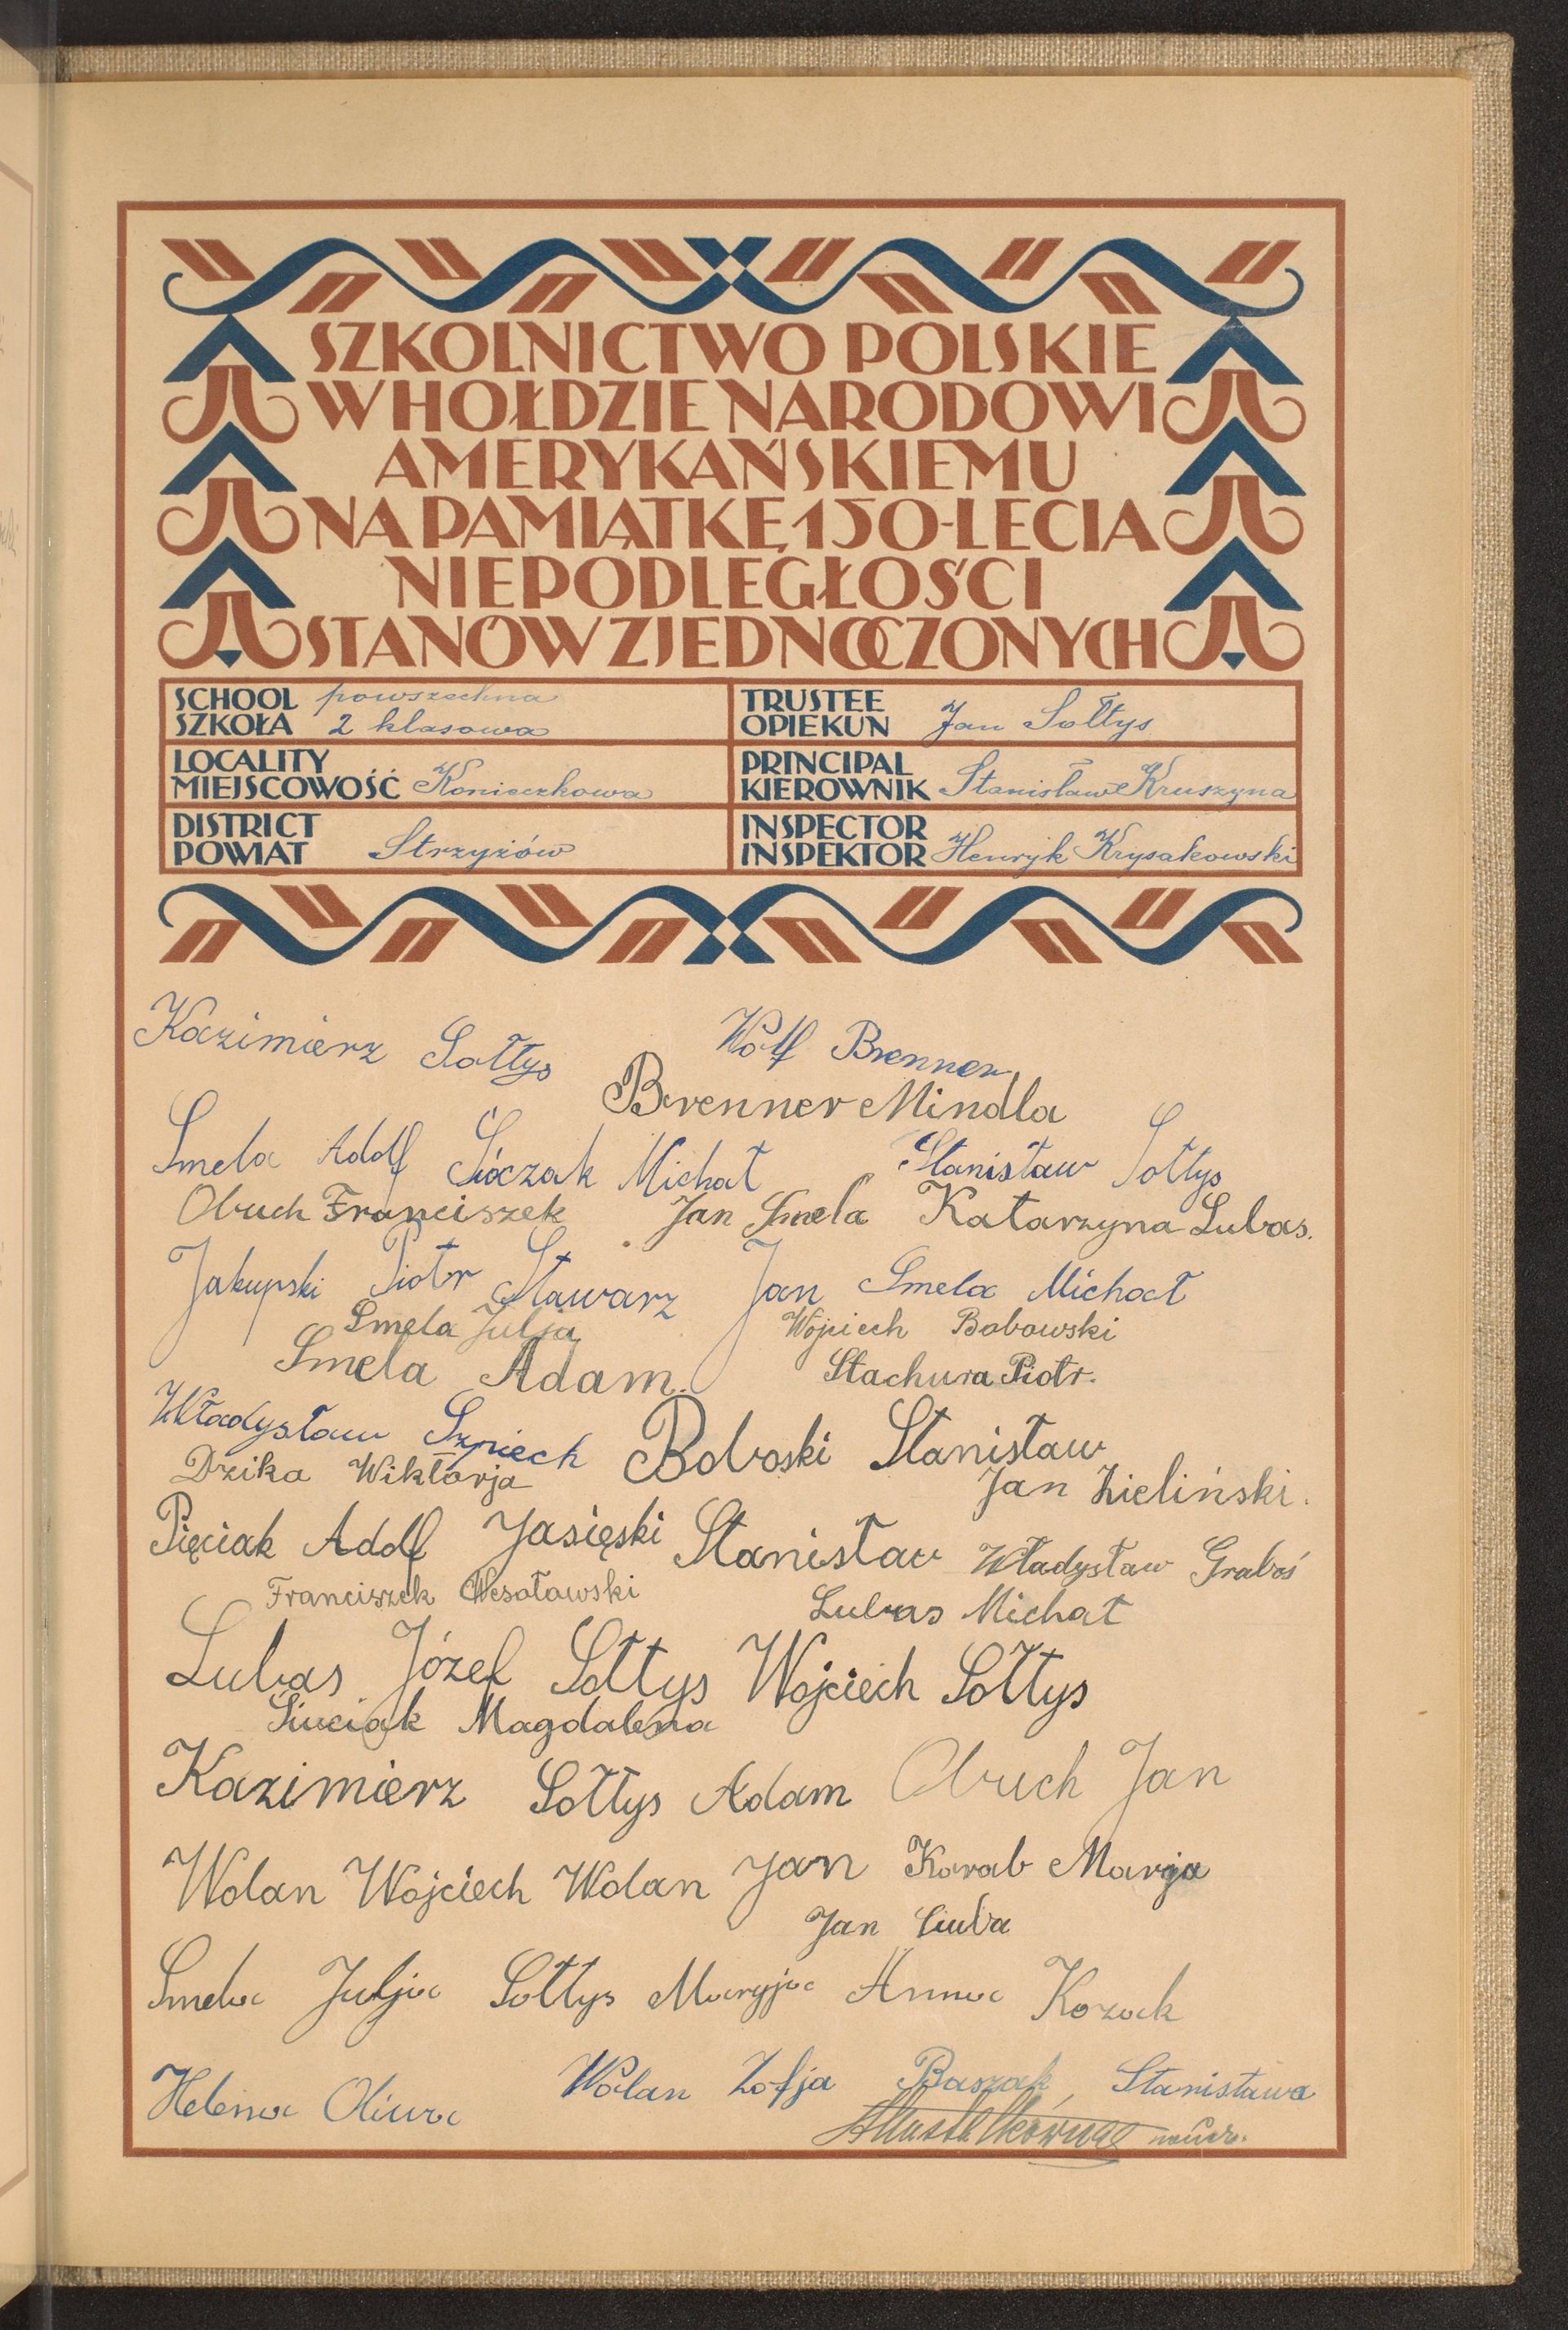 SZKOLNICTWO POLSKIE
W HOŁDZIE NARODOWI
AMERYKAŃSKIEMU
NA PAMIĄTKĘ 150-LECIA
NIEPODLEGŁOŚCI
STANÓW ZJEDNOCZONYCH
SCHOOL SZKOŁA powszechna 2 klasowa
TRUSTEE OPIEKUN Jan Sołtys
LOCALITY MIEJSCOWOŚĆ Konieczkowa
PRINCIPAL KIEROWNIK Stanisław Kruszyna
DISTRICT POWIAT Strzyżów
INSPECTOR INSPEKTOR Henryk Krysakowski
Kazimierz Sołtys Wolf Brenner
Brenner Mindla
Smela Adolf Michał Stanisław Sołtys
Obuch Franciszek Jan Smela Katarzyna Lubas.
Jakupski Piotr Stawarz Jan Smela Michał
Smela Julja Wojciech Bobowski
Smela Adam. Stachura Piotr.
Władysław Szpiech Boboski Stanisław
Dzika Wiktorja Jan Zieliński.
Pięciak Adolf Jasięski Stanisław Władysław Graboś
Franciszek Wesołowski Lubas Michał
Lubas Józef Sołtys Wojciech Sołtys
Siuciak Magdalena
Kazimierz Sołtys Adam Obuch Jan
Wolan Wojciech Wolan Jan Karab Marja
Jan Ciuba
Smela Julja Sołtys Maryja Anna Kozak
Helena Oliwa Wolan Zofja Baszak Stanisława
naucz.